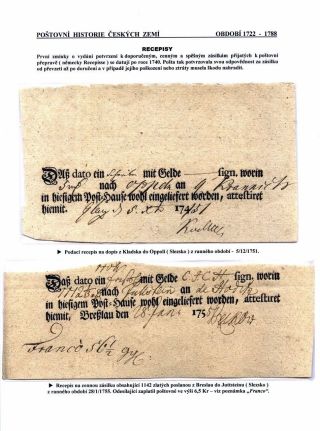 POŠTOVNÍ HISTORIE ČESKÝCH ZEMÍ OBDOBÍ 1722 - 1788
RECEPISY
První zmínky o vydání potvrzení k doporučeným, cenným a spěšným zásilkám přijatých k poštovní
přepravě ( německy Recepisse ) se datují po roce 1740. Pošta tak potvrzovala svou odpovědnost za zásilku
od převzetí až po doručení a v případě jejího poškození nebo ztráty musela škodu nahradit.
Daß dato ein mit Gelde sign. worin
nach Oppeln an
in hiesigem Post-Hause wohl eingeliefert worden, attestiret
hiemit. 1751
► Podací recepis na dopis z Kladska do Oppeli ( Slezsko ) z ranného období - 5/12/1751.
Daß dato ein mit Gelde sign. worin
nach an
in hiesigem Post-Hause wohl eingeliefert worden, attestiret
hiemit, Breßlau den 28 Jan: 175
Franco
► Recepis na cennou zásilku obsahující 1142 zlatých poslanou z Breslau do Juttsteinu ( Slezsko )
z ranného období 28/1/1755. Odesílající zaplatil poštovné ve výši 6,5 Kr – viz poznámka „Franco".